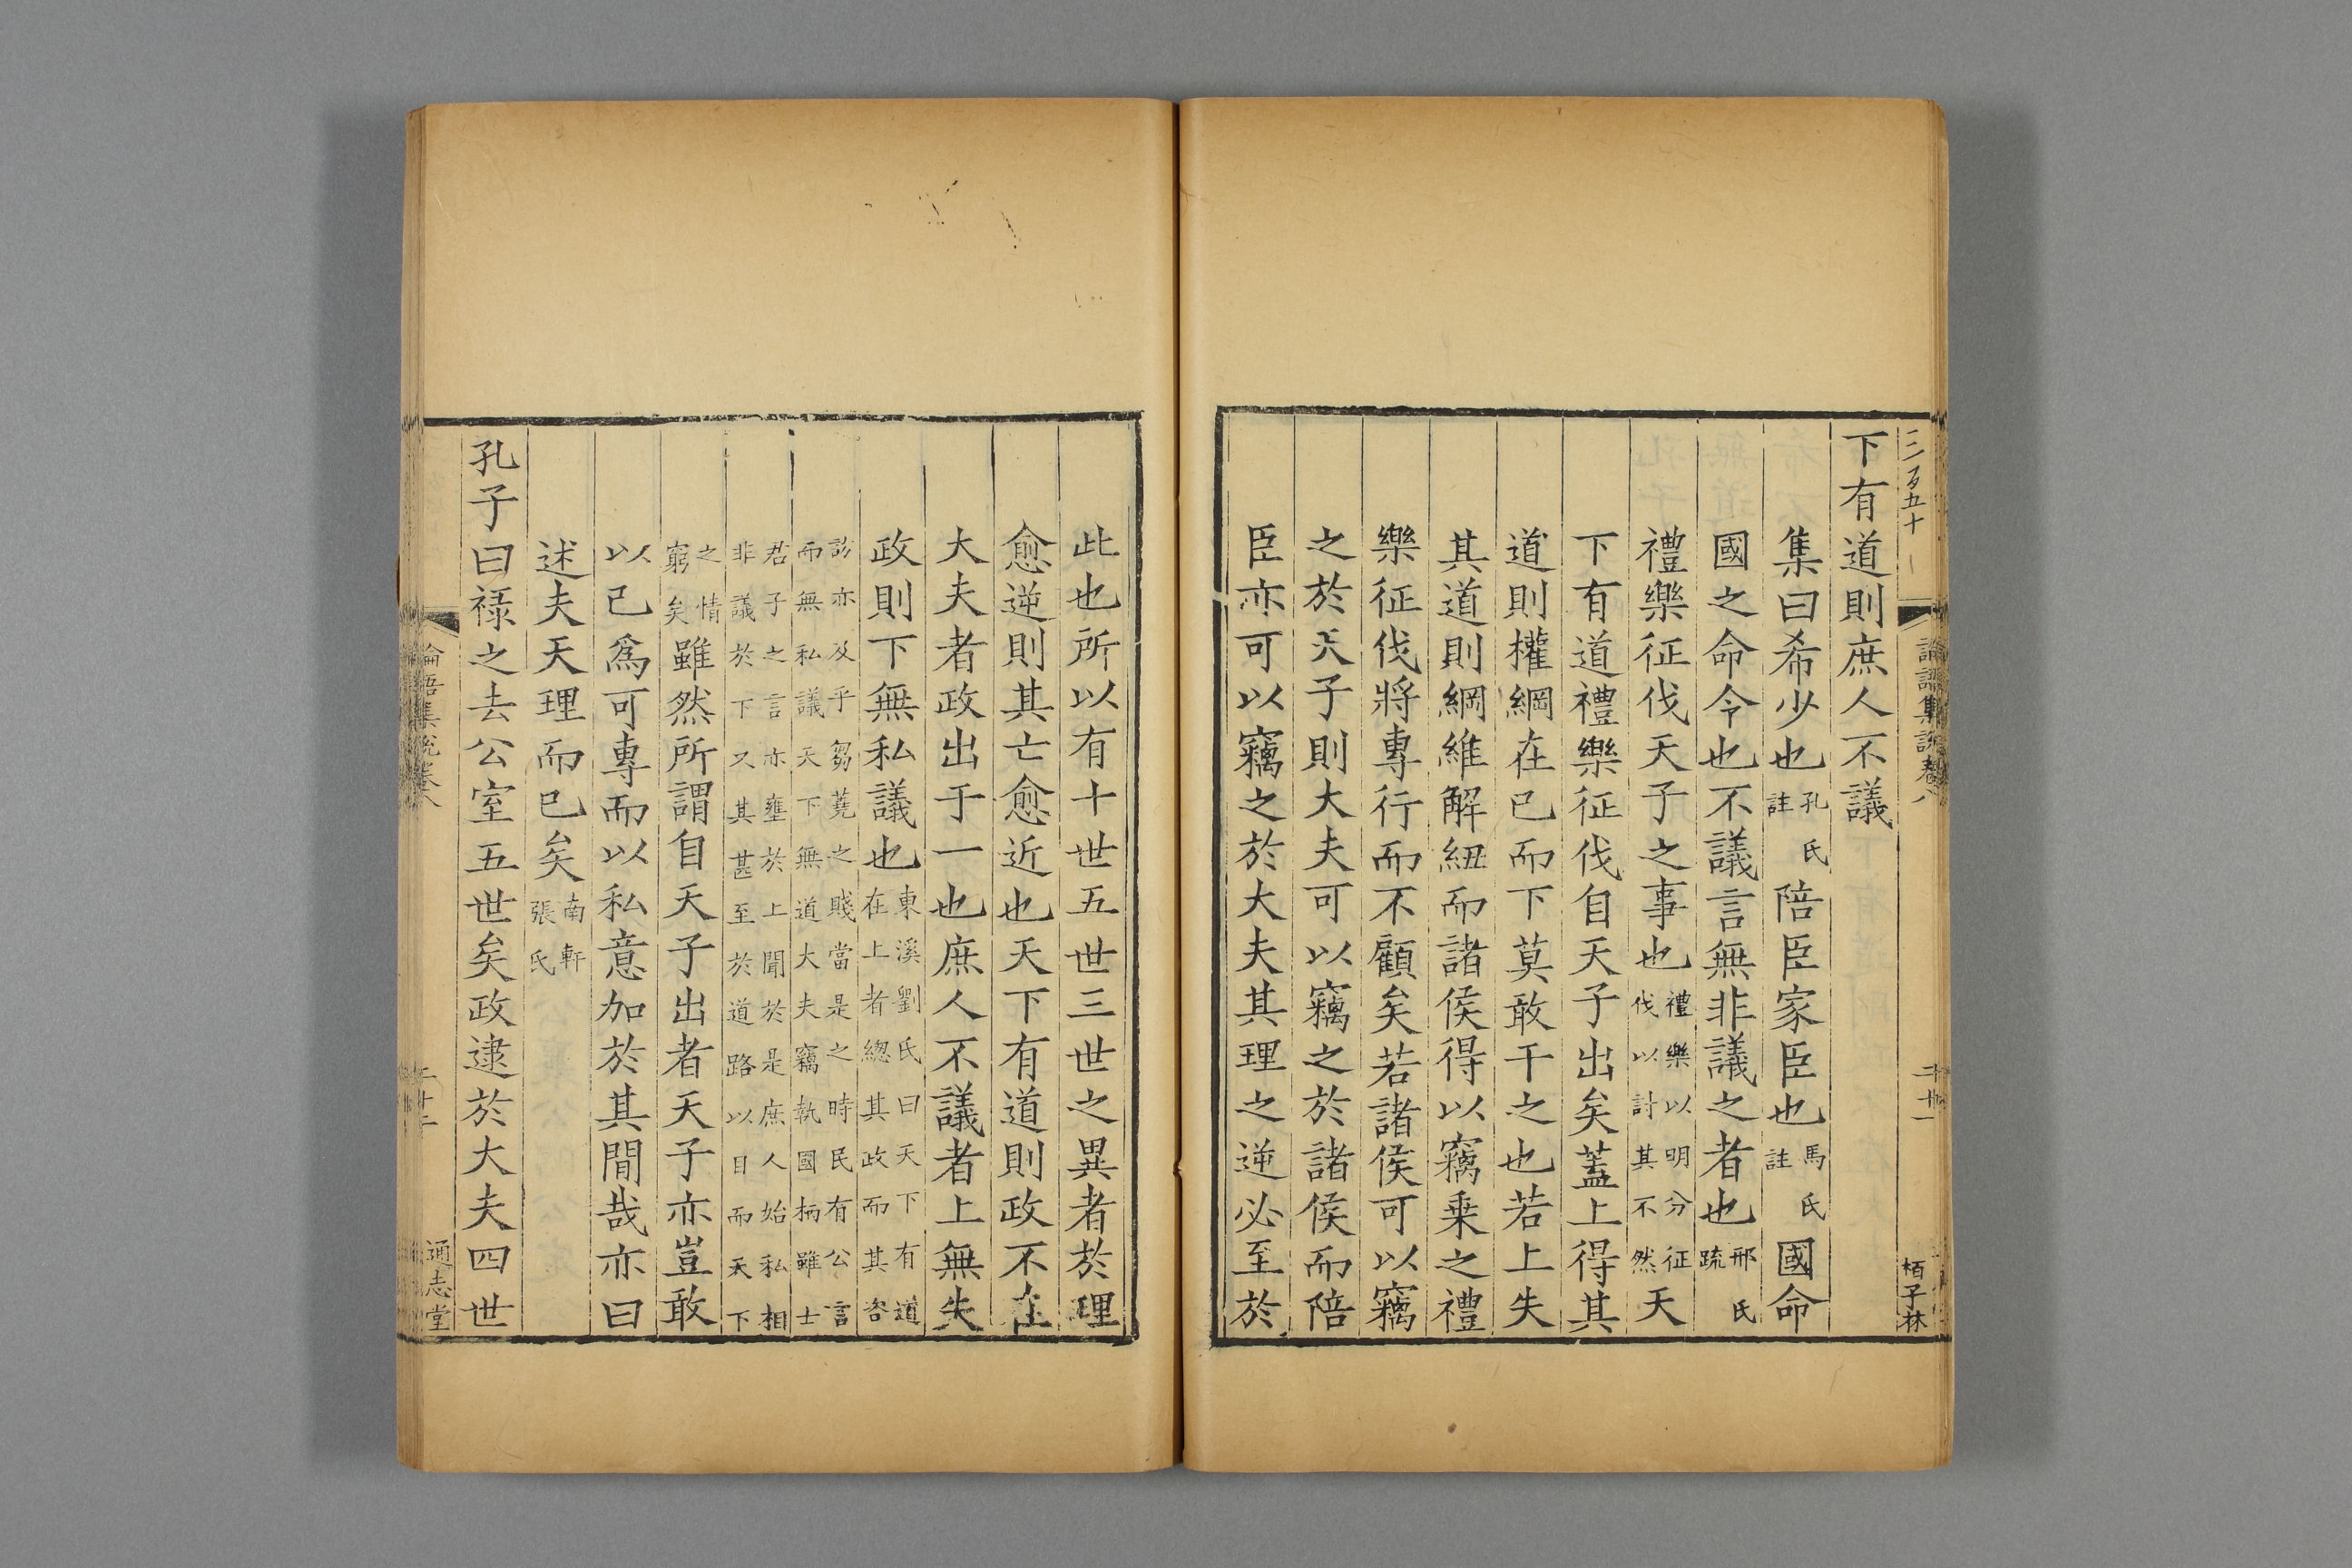 三百五十
論語集說卷八
二十一
栢子林
下有道則庶人不議
集曰希少也孔氏註陪臣家臣也馬氏註國命
國之命令也不議言無非議之者也邢氏疏
禮樂征伐天子之事也禮樂以明分征伐以討其不然天
下有道禮樂征伐自天子出矣蓋上得其
道則權綱在已而下莫敢干之也若上失
其道則綱維解紐而諸侯得以竊乗之禮
樂征伐將專行而不顧矣若諸侯可以竊
之於天子則大夫可以竊之於諸侯而陪
臣亦可以竊之於大夫其理之逆必至於
此也所以有十世五世三世之異者於理
愈逆則其亡愈近也天下有道則政不在
大夫者政出于一也庶人不議者上無失
政則下無私議也東溪劉氏曰天下有道在上者總其政而其咨
訪亦及乎芻蕘之賤當是之時民有公言而無私議天下無道大夫竊執國柄雖士
君子之言亦壅於上聞於是庶人始私相非議於下又其甚至於道路以目而天下
之情窮矣雖然所謂自天子出者天子亦豈敢
以己爲可專而以私意加於其間哉亦曰
述夫天理而已矣南軒張氏
孔子曰祿之去公室五世矣政逮於大夫四世
論語集說卷八
二十二
通志堂